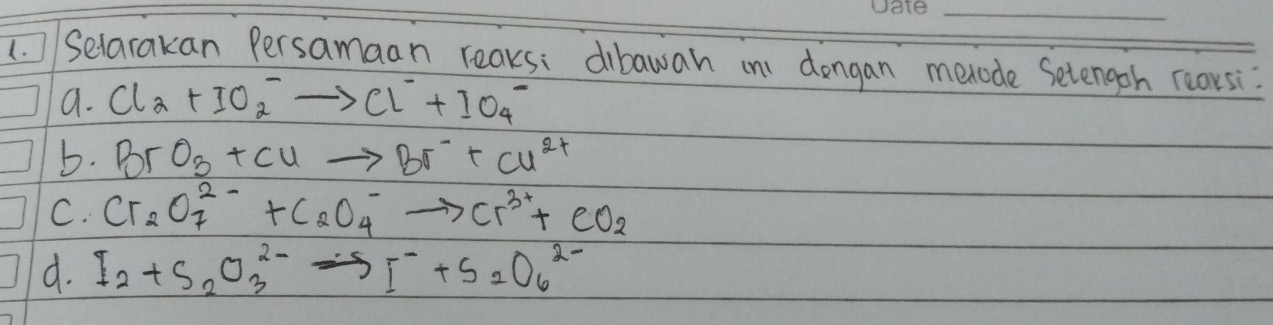 Date
1. Selarakan Persamaan reaksi dibawah ini dengan metode Setengah reaksi:
a. Cl₂ + IO₂⁻ → Cl⁻ + IO₄⁻
b. BrO₃ + Cu → Br⁻ + Cu²⁺
C. Cr₂O₇²⁻ + C₂O₄⁻ → Cr³⁺ + CO₂
d. I₂ + S₂O₃²⁻ → I⁻ + S₂O₆²⁻